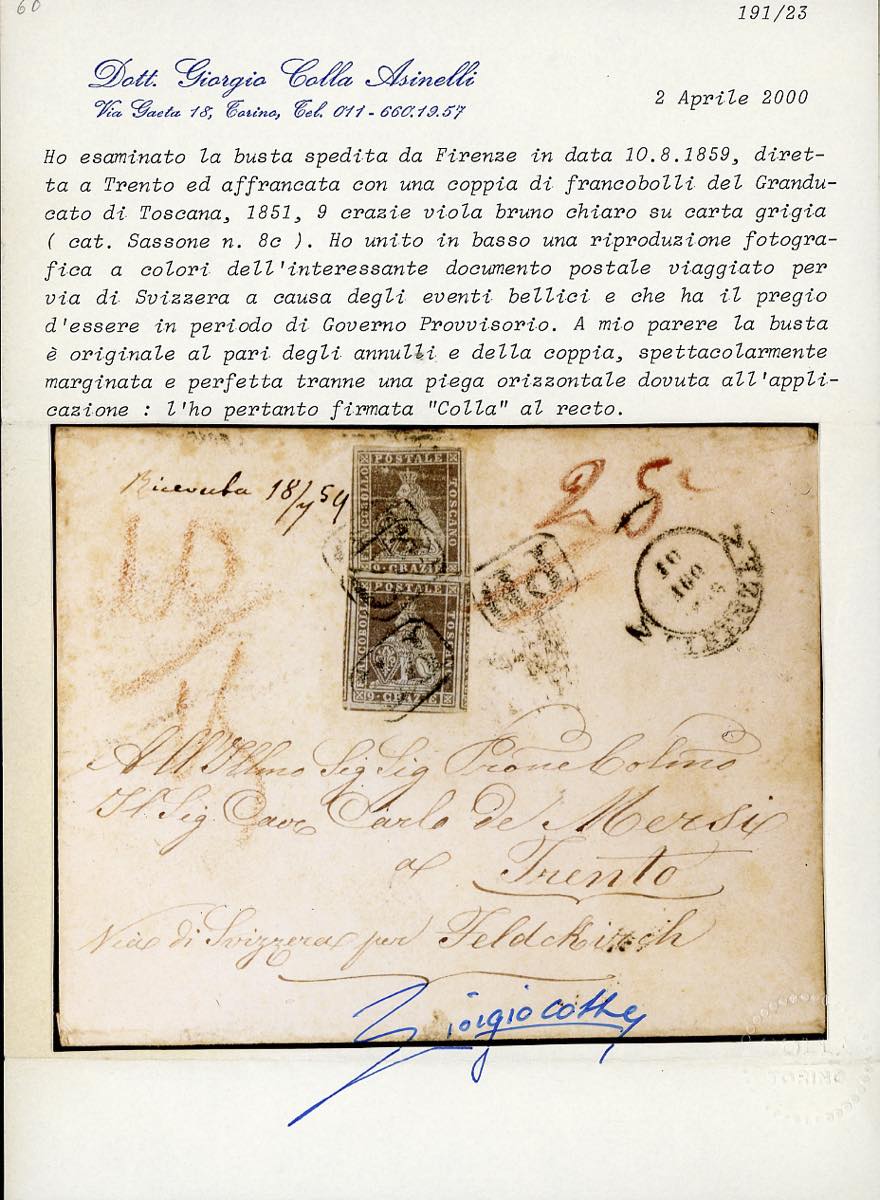 60
191/23
Dott. Giorgio Colla Asinelli
Via Gaeta 18, Torino, Tel. 011-660.19.57
2 Aprile 2000
Ho esaminato la busta spedita da Firenze in data 10.8.1859, diret-
ta a Trento ed affrancata con una coppia di francobolli del Grandu-
cato di Toscana, 1851, 9 crazie viola bruno chiaro su carta grigia
( cat. Sassone n. 8c ). Ho unito in basso una riproduzione fotogra-
fica a colori dell'interessante documento postale viaggiato per
via di Svizzera a causa degli eventi bellici e che ha il pregio
d'essere in periodo di Governo Provvisorio. A mio parere la busta
è originale al pari degli annulli e della coppia, spettacolarmente
marginata e perfetta tranne una piega orizzontale dovuta all'appli-
cazione : l'ho pertanto firmata "Colla" al recto.
Ricevuta 18/7 59
FRANCOBOLLO POSTALE TOSCANO
9 · CRAZIE
25
PD
10 AGO
FIRENZE
FRANCOBOLLO POSTALE TOSCANO
9 · CRAZIE
All'Illmo Sig Sig Prone Colmo
Il Sig Cave Carlo de' Mersi
a
Trento
Via di Svizzera per Feldckirch
Giorgio Colla
TORINO